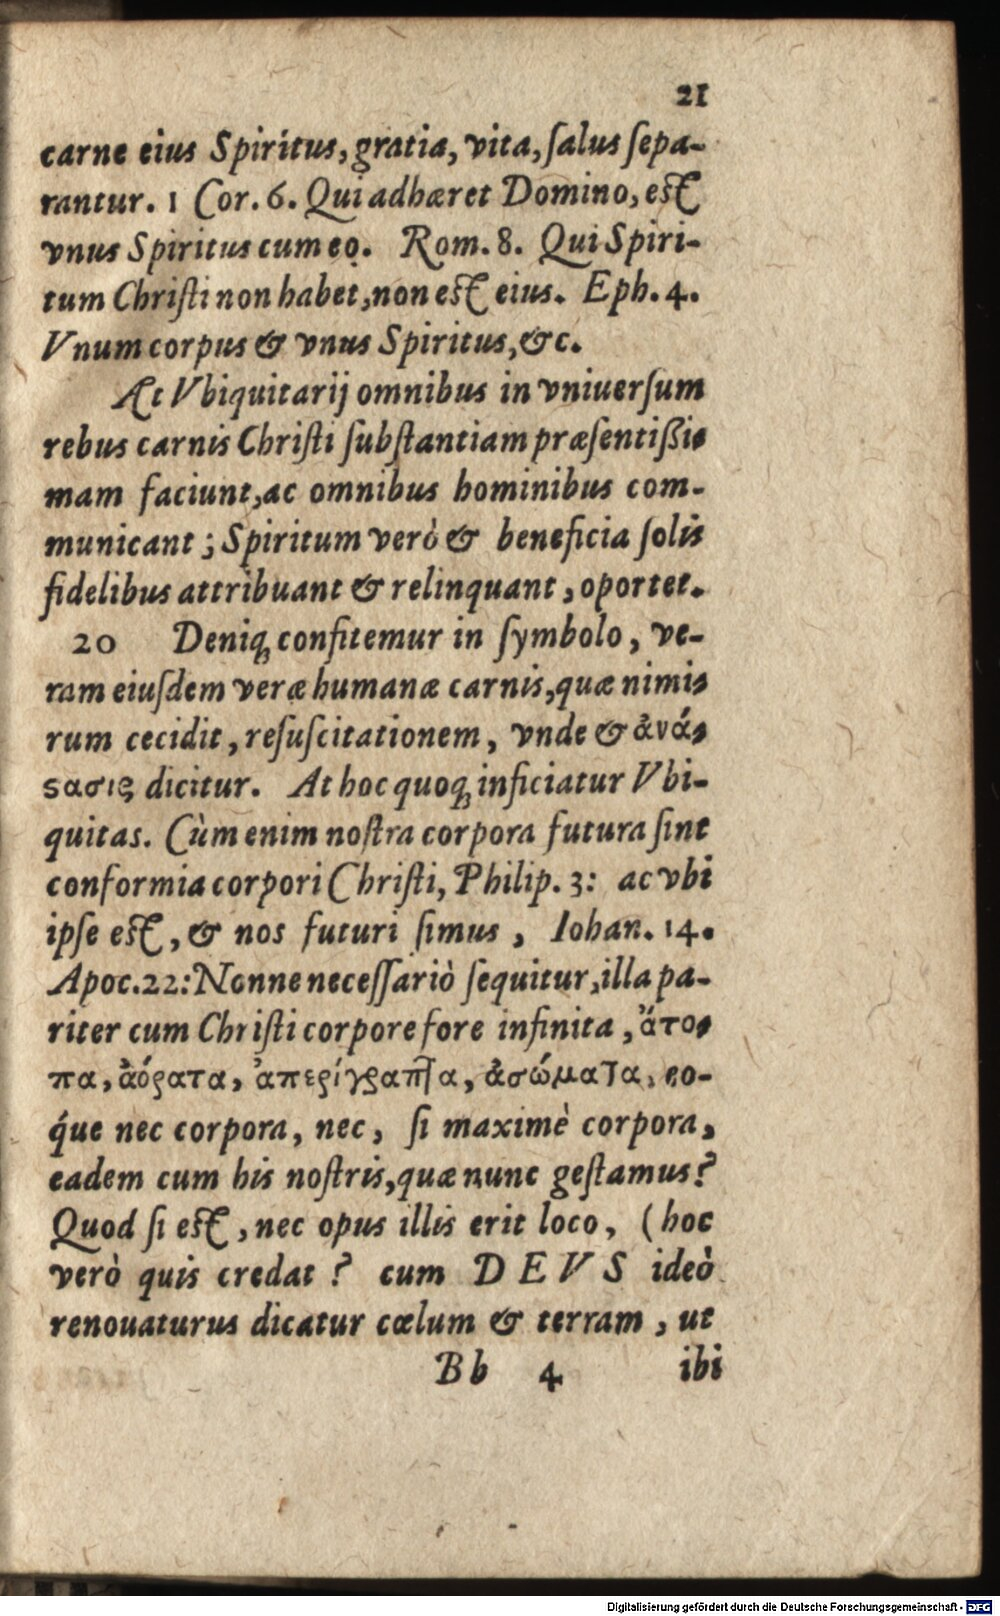 21
carne eius Spiritus, gratia, vita, ſalus ſepa-
rantur. 1 Cor. 6. Qui adhæret Domino, eſt
vnus Spiritus cum eo. Rom. 8. Qui Spiri-
tum Chriſti non habet, non eſt eius. Eph. 4.
Vnum corpus & vnus Spiritus, &c.
At Vbiquitarij omnibus in vniuerſum
rebus carnis Chriſti ſubſtantiam præſentißi-
mam faciunt, ac omnibus hominibus com-
municant; Spiritum verò & beneficia ſolis
fidelibus attribuant & relinquant, oportet.
20 Deniq; confitemur in ſymbolo, ve-
ram eiuſdem veræ humanæ carnis, quæ nimi-
rum cecidit, reſuſcitationem, vnde & ἀνά-
ϛασις dicitur. At hoc quoq; inficiatur Vbi-
quitas. Cùm enim noſtra corpora futura ſint
conformia corpori Chriſti, Philip. 3: ac vbi
ipſe eſt, & nos futuri ſimus, Iohan. 14.
Apoc. 22: Nonne neceſſariò ſequitur, illa pa-
riter cum Chriſti corpore fore infinita, ἄτο-
πα, ἀόρατα, ἀπερίγραπτα, ἀσώματα, eo-
q́ue nec corpora, nec, ſi maximè corpora,
eadem cum his noſtris, quæ nunc geſtamus?
Quod ſi eſt, nec opus illis erit loco, (hoc
verò quis credat? cum DEVS ideò
renouaturus dicatur cœlum & terram, ut
Bb 4 ibi
Digitalisierung gefördert durch die Deutsche Forschungsgemeinschaft - DFG